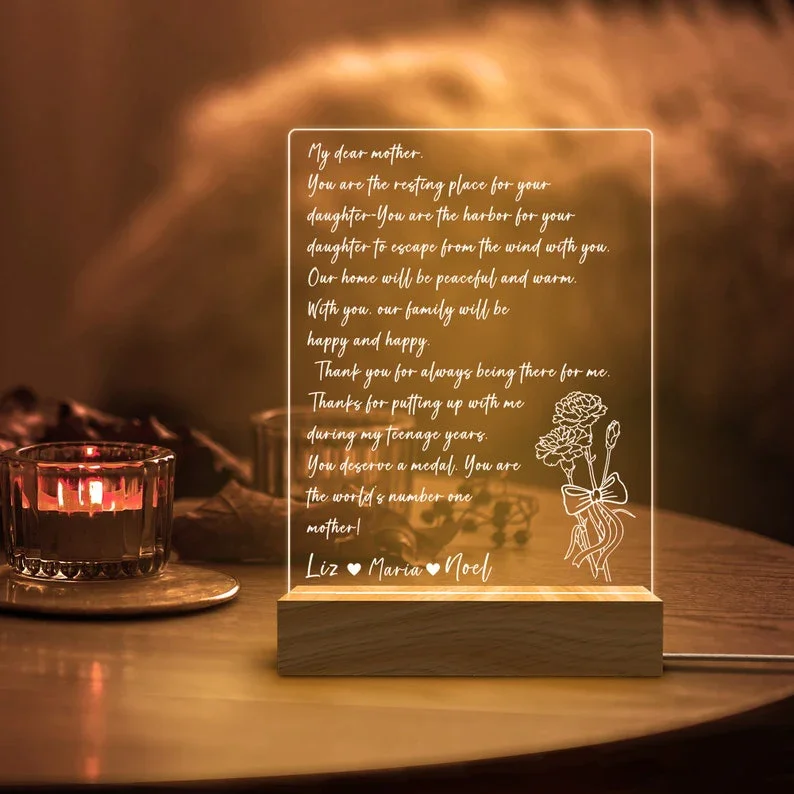 My dear mother.
You are the resting place for your
daughter-You are the harbor for your
daughter to escape from the wind with you.
Our home will be peaceful and warm.
With you. our family will be
happy and happy.
Thank you for always being there for me.
Thanks for putting up with me
during my teenage years.
You deserve a medal. You are
the world's number one
mother!
Liz ♥ Maria ♥ Noel